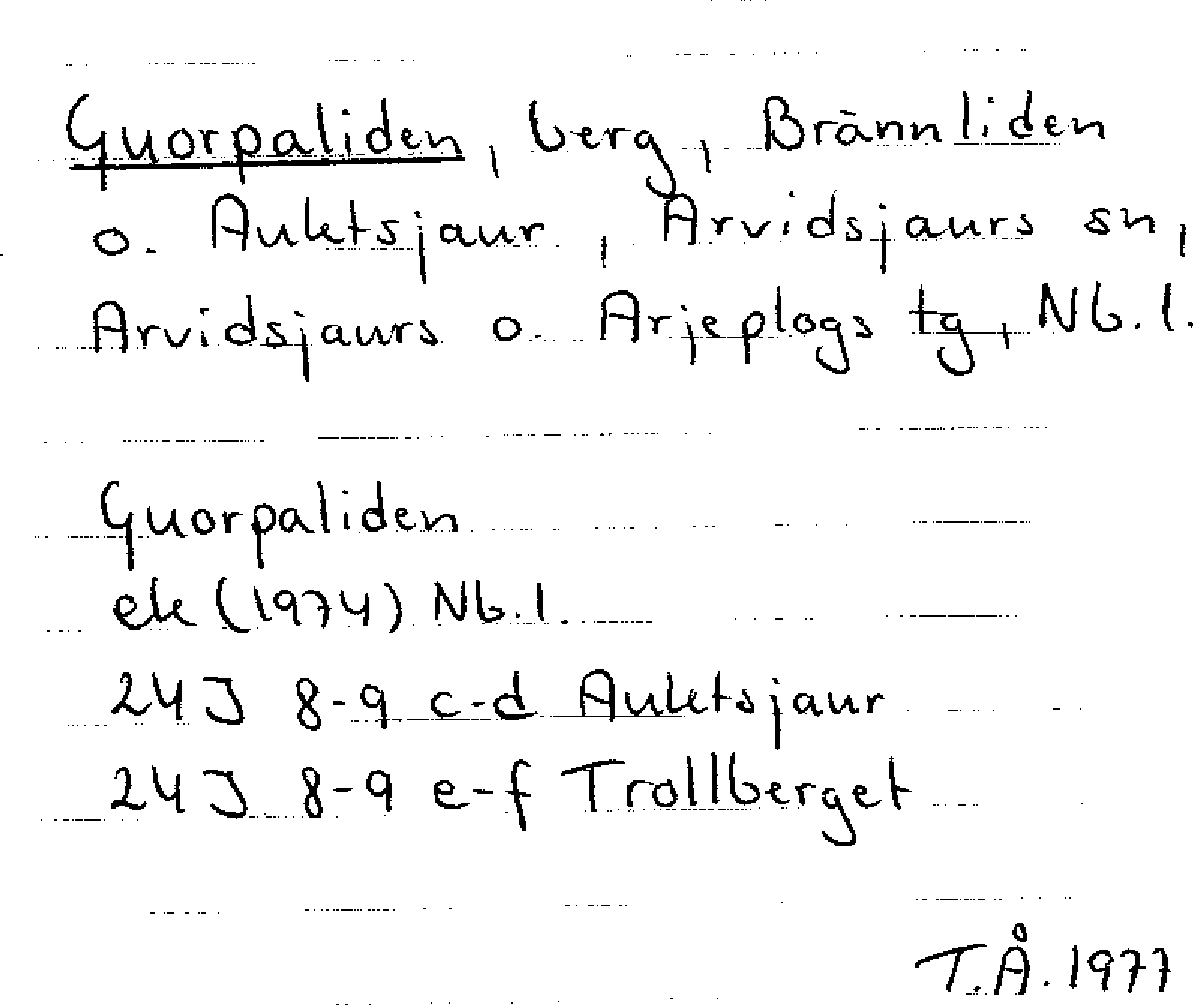 Guorpaliden, berg, Brännliden
o. Auktsjaur, Arvidsjaurs sn,
Arvidsjaurs o. Arjeplogs tg, Nb.l.
Guorpaliden
ek (1974) Nb.l.
24J 8-9 c-d Auktsjaur
24J 8-9 e-f Trollberget
T.Å. 1977